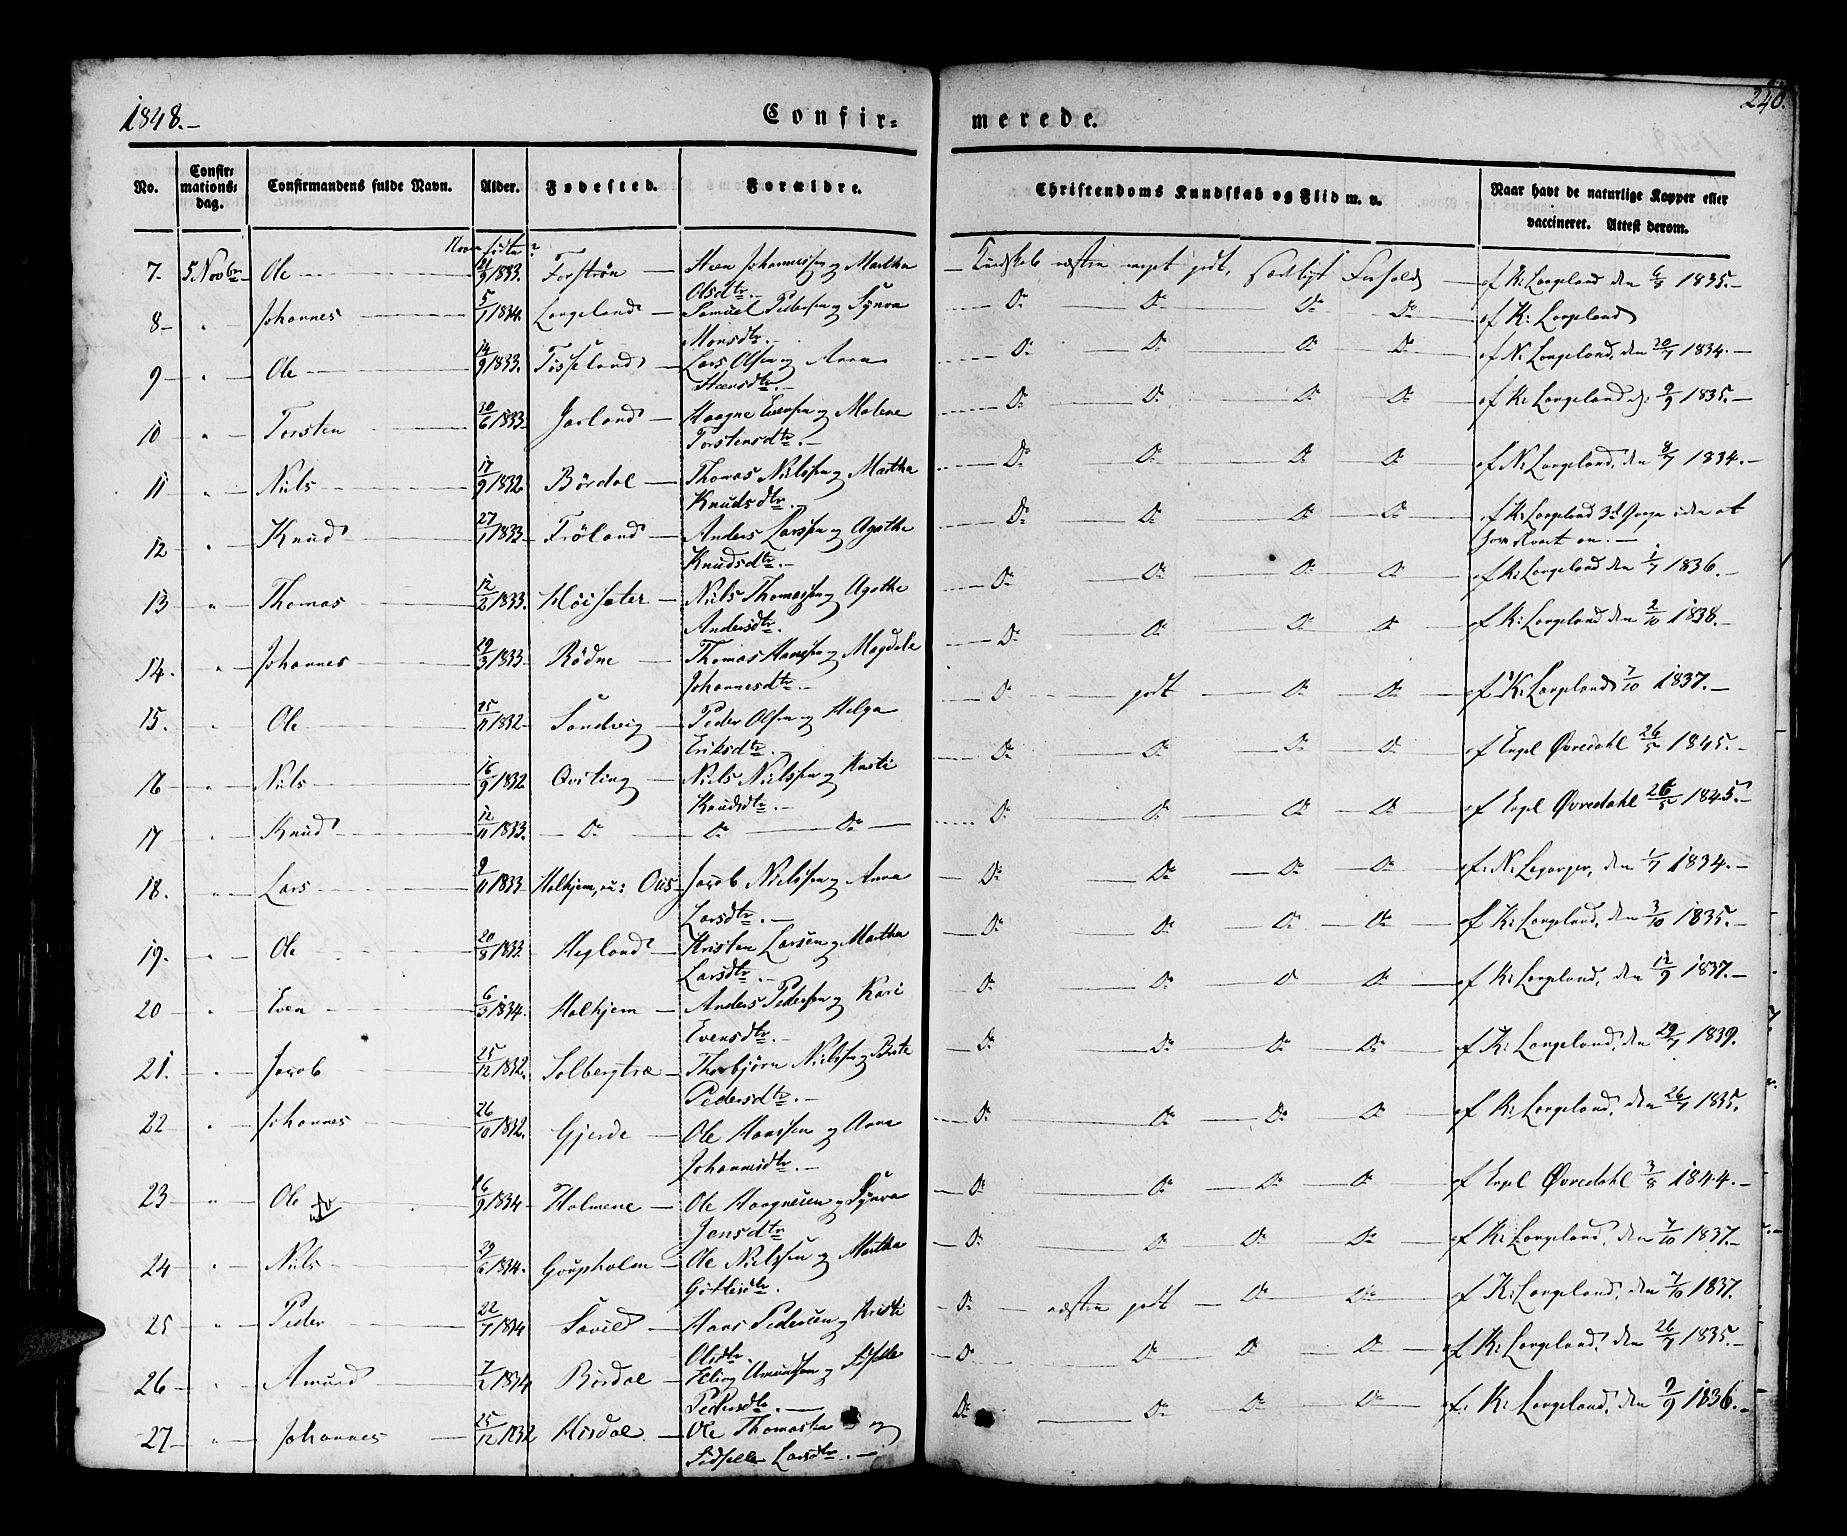 1848.-
Confir-
merede.
240.
No.
Confir-
mations-
dag.
Confirmandens fulde Navn.
Alder.
Fødested.
Forældre.
Christendoms Kundskab og Flid m. v.
Naar havt de naturlige Kopper eller
vaccineret. Attest derom.
7. 5 Novbr Ole 21/9 1833. Martha af K: Langeland den 6/8 1835.-
Olsdtr.
8 " Johannes 5/1 1834. Langeland Samuel Pedersen og Synva Do Do Do Do af K: Langeland
Monsdtr.
9 " Ole 14/9 1833. Tøsseland Lars Olsen og Anna Do Do Do Do af N: Langeland, den 20/7 1834.-
Hansdtr.-
10 " Torsten 30/6 1833. Jarland Haagne Evensen og Malene Do Do Do Do af K: Langeland d: 9/9 1835.-
Torstensdtr.-
11 " Niels 17/9 1832 Børdal Thomas Nielssen og Martha Do Do Do Do af N: Langeland, den 8/7 1834.-
Knudsdtr.
12 " Knud 27/1 1833 Frøland Anders Larssen og Agathe Do Do Do Do af K: Langeland 3d Gange uden at
Knudsdtr.-
13 " Thomas 12/2 1833. Høisæter Niels Thomassen og Agathe Do Do Do Do af K: Langeland den 1/7 1836.-
Andersdtr.
14. " Johannes 29/3 1833 Rødne Thomas Hanssen og Magdele Do Do Do Do af K: Langeland den 2/10 1838.-
Johannesdtr.-
15. " Ole 25/11 1832 Sandvig Peder Olsen og Helga Do godt Do Do af K: Langeland 7/10 1837.-
Eriksdtr.-
16 " Niels 16/9 1832 Qviting Niels Nielssen og Kristi Do Do Do Do af Engl Øvredahl 26/5 1845.-
Knudsdtr.-
17 Knud 12/11 1833. Do Do Do Do Do Do Do af Engl Øvredahl 26/5 1845.-
18. " Lars 9/11 1833 Halhjem, Ous Jacob Nielssen og Anna Do Do Do Do af N: den 1/7 1834.-
Larsdtr.-
19. " Ole 20/8 1833. Hegland Kristen Larsen og Martha Do Do Do Do af K: Langeland, den 3/10 1835.-
Larsdtr.-
20 " Even 6/3 1834. Halhjem Anders Pedersen og Kari Do Do Do Do af K: Langeland, den 12/9 1837.-
Evensdtr.-
21. " Jacob 25/12 1832. Solbergtræ Thorbjørn Nielssen og Brite Do Do Do Do af K: Langeland, den 29/7 1839.
Pedersdtr.-
22 " Johannes 26/10 1832. Gjerde Ole Hanssen og Anna Do Do Do Do af K: Langeland, den 26/7 1835.
Johannesdtr.-
23 " Ole 16/9 1834 Holmene Ole Haagnesen og Synva Do Do Do Do af Engl Øvredahl 3/8 1844.-
Jensdtr.
24 " Niels 29/6 1834. Gaupholm Ole Nielssen og Martha Do Do Do Do af K: Langeland, den 7/10 1837.-
25 " Peder 22/7 1834 Søvild Hans Pedersen og Kristi Do næsten godt Do Do af K: Langeland, den 7/10 1837.
Olsdtr.
26 " Amund 7/2 1834 Børdal Elling Amundsen og Do Do Do Do af K: Langeland, den 26/7 1835.-
Pedersdtr.-
27 " Johannes 25/12 1832 Hisdal Ole Thomassen og Do Do Do Do af K: Langeland, den 9/9 1836.-
Larsdtr.-